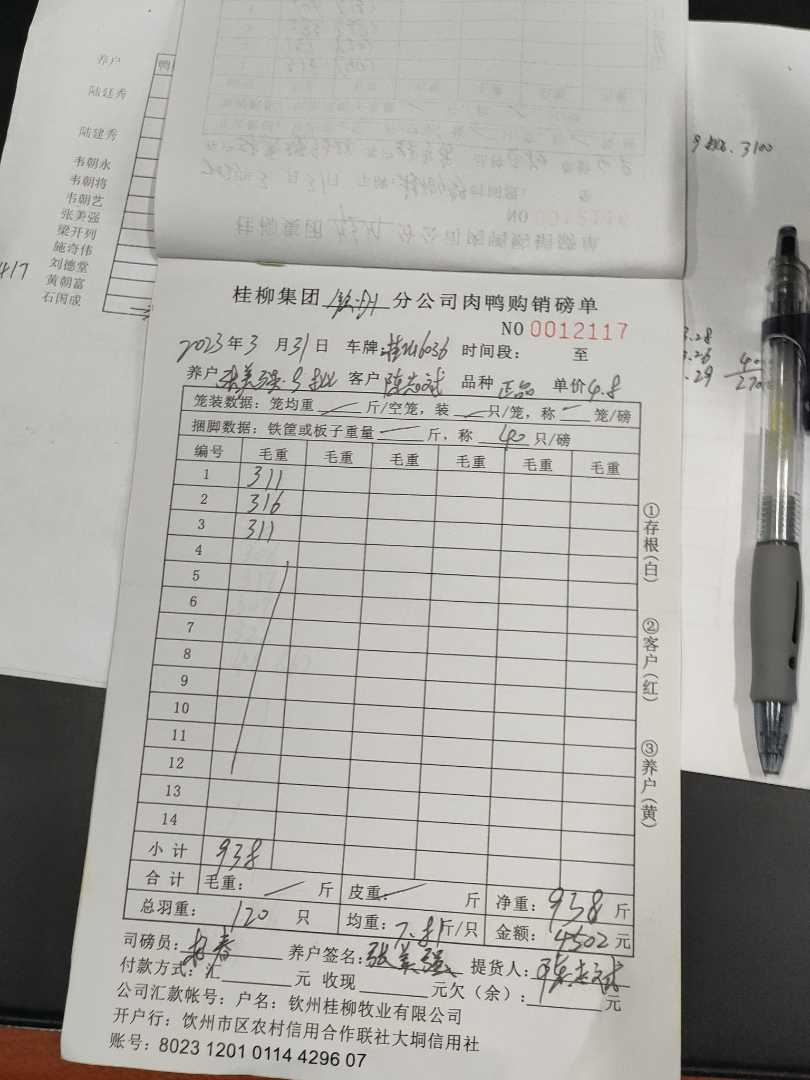 养户
陆廷秀
陆建秀
韦朝永
韦朝将
韦朝艺
张美强
梁开列
施奇伟
刘德堂
黄朝富
石国成
417
3100
3.28
3.26
3.29
桂柳集团 钦州 分公司肉鸭购销磅单
NO 0012117
2023年3月31日 车牌: 时间段: 至
养户 张美强 客户 陈志斌 品种 正品 单价4.8
笼装数据: 笼均重 斤/空笼, 装 只/笼, 称 笼/磅
捆脚数据: 铁筐或板子重量 斤, 称 40 只/磅
编号 毛重 毛重 毛重 毛重 毛重 毛重
1 311
2 316
3 311
4
5
6
7
8
9
10
11
12
13
14
小计 938
合计 毛重: 斤 皮重: 斤 净重: 938 斤
总羽重: 120 只 均重: 7.81斤/只 金额: 4502 元
司磅员: 养户签名: 张美强 提货人:
付款方式: 汇 元 收现 元欠(余): 元
公司汇款帐号: 户名: 钦州桂柳牧业有限公司
开户行: 钦州市区农村信用合作联社大垌信用社
账号: 8023 1201 0114 4296 07
①存根(白)
②客户(红)
③养户(黄)